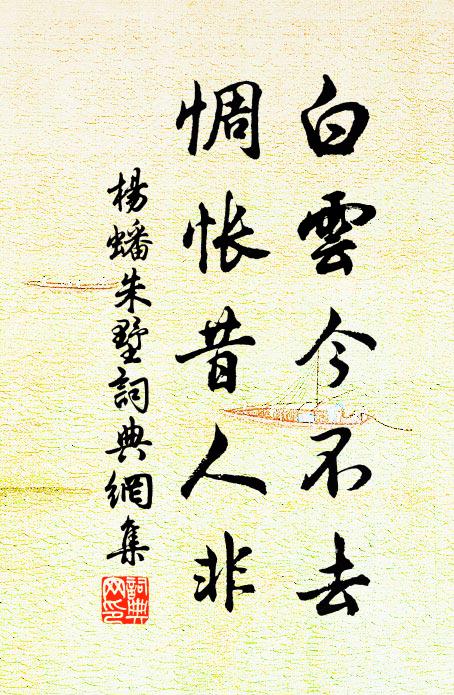 白雲今不去
惆怅昔人非
楊蟠朱墅詞典網集
詞典
网印